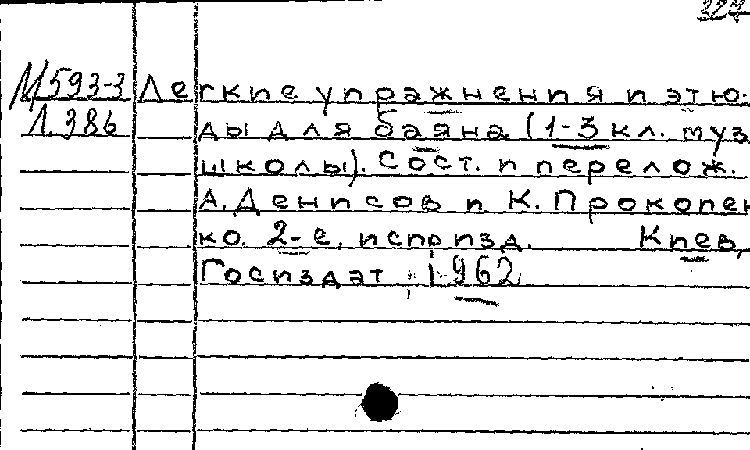 327
М593-3 Легкие упражнения и этю-
Л.386 ды для баяна (1-3 кл. муз
школы). Сост. и перелож.
А. Денисов и К. Прокопен
ко. 2-е, испр изд. Киев,
Госиздат 1962